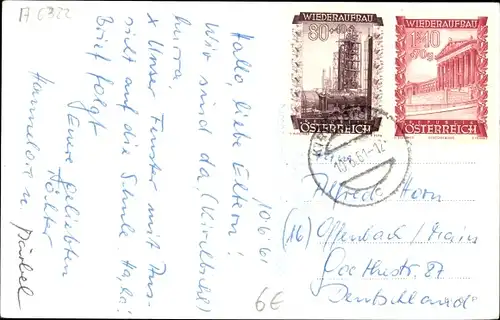 A 6322
10.6.61
Hallo, liebe Eltern!
Wir sind da, (Kirchbichl)
hurra.
x Unser Fenster mit Aus-
sicht auf die Schule. Haha!
Brief folgt
Eure geliebten
Töchter
Hannelore u. Bärbel
6€
WIEDERAUFBAU
80
REPUBLIK
ÖSTERREICH
WIEDERAUFBAU
1.40
+70g
REPUBLIK
ÖSTERREICH
61-12
Alfred Horn
(16) Offenbach/Main
Goethestr. 27
Deutschland